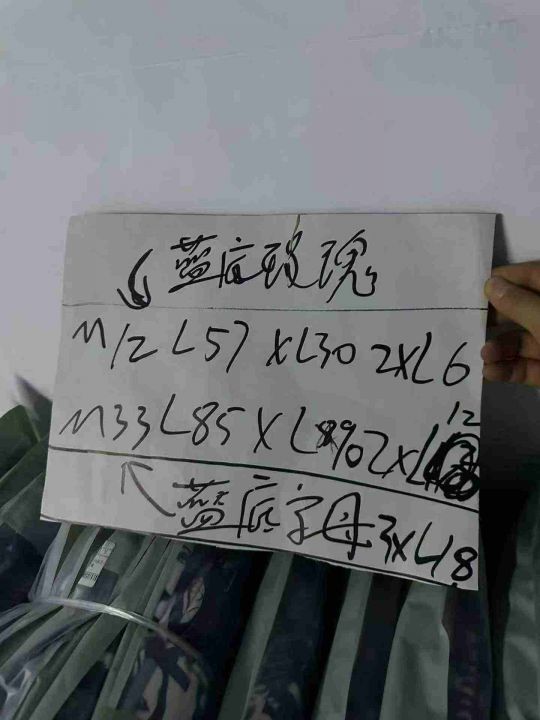 蓝底玫瑰
M12 L57 XL30 2XL6
12
M33 L85 XL90 2XL
蓝底字母 3XL18